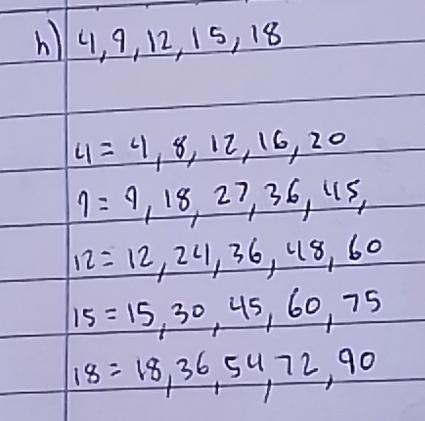 h) 4, 9, 12, 15, 18
4 = 4, 8, 12, 16, 20
9 = 9, 18, 27, 36, 45,
12 = 12, 24, 36, 48, 60
15 = 15, 30, 45, 60, 75
18 = 18, 36, 54, 72, 90